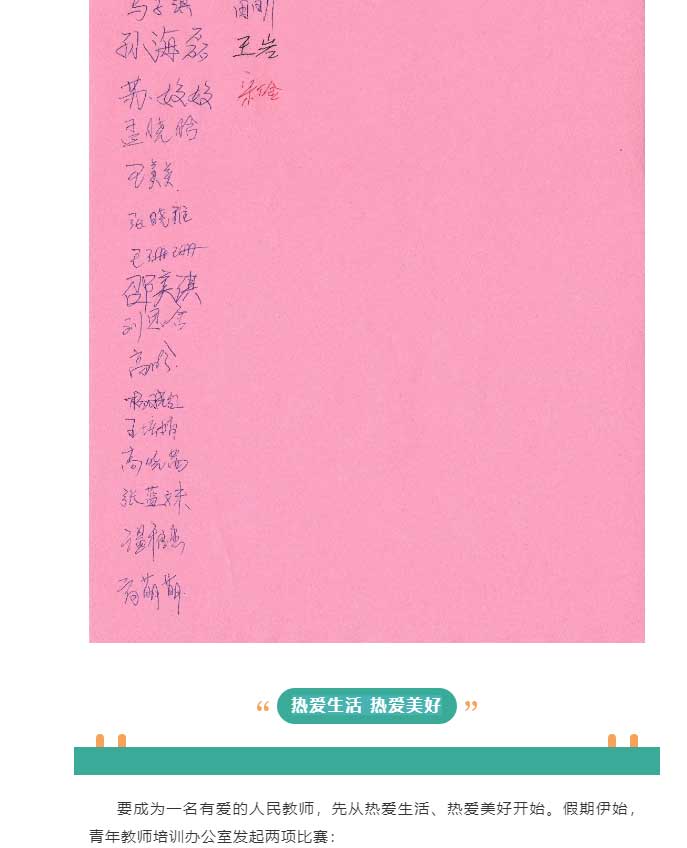 孙海磊 王岩
苏姣姣
孟晓晗
王美美
张晓雅
王珊珊
邵美淇
高晓茜
张蓝妹
温雅惠
“热爱生活 热爱美好”
要成为一名有爱的人民教师，先从热爱生活、热爱美好开始。假期伊始，
青年教师培训办公室发起两项比赛：